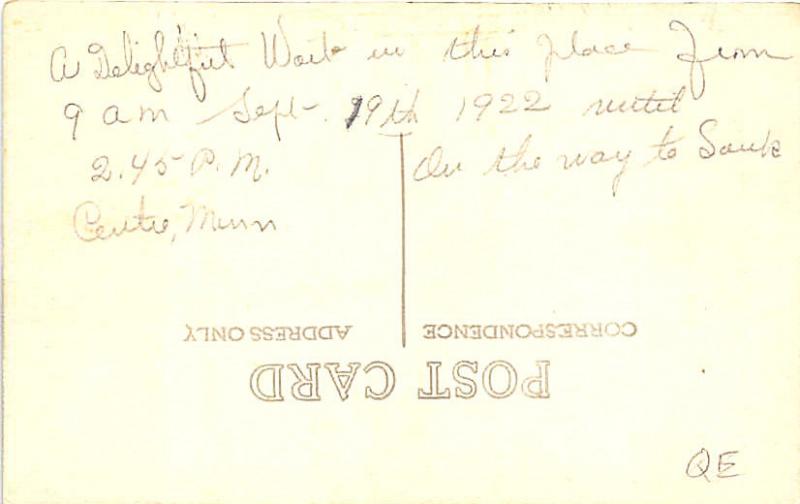 A Delightful Wait in this place From
9 am Sept. 19th 1922 until
2.45 P.M. On the way to Sauk
Centre, Minn
ADDRESS ONLY CORRESPONDENCE
POST CARD
QE